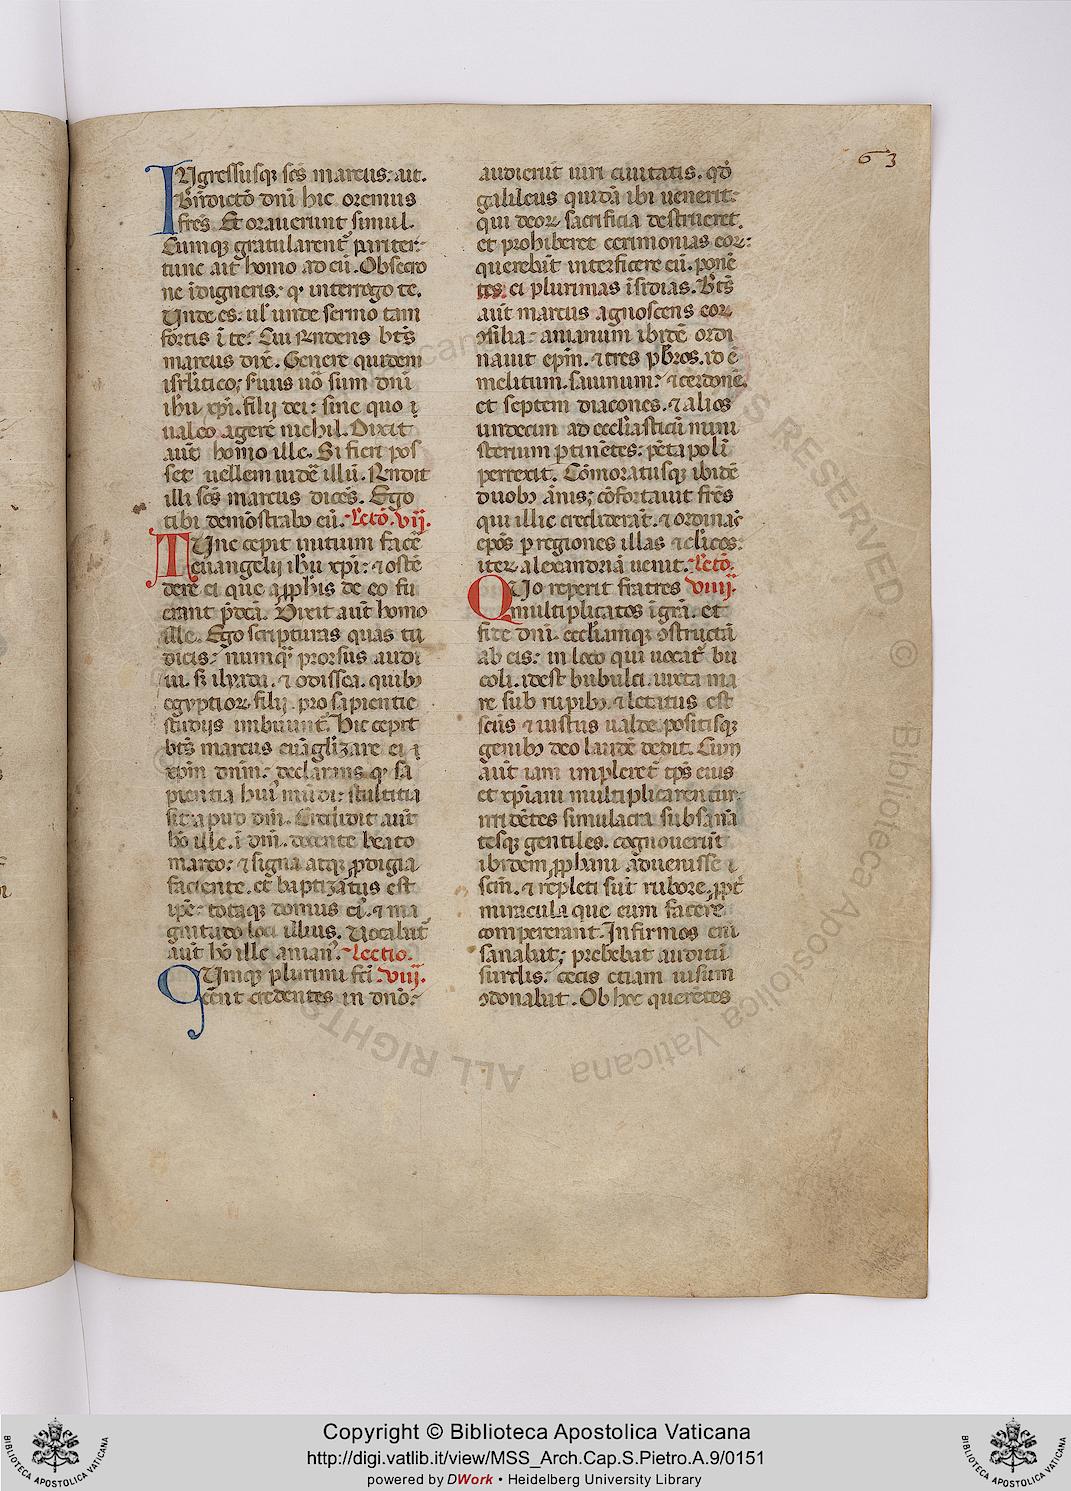 63
INgressusq; scs marcus: ait.
Bndicto dni hic oremus
fres. Et orauerunt simul.
Cumq; gratularent pariter:
tunc ait homo ad eu. Obsecro
ne idigneris: q interrogo te.
Unde es. ul unde sermo tam
fortis i te. Cui Rndens bts
marcus dix. Genere quidem
isrlitico; seruus uo sum dni
ihu xpi. filij dei: sine quo i
ualeo agere nichil. Dixit
aut homo ille. Si fieri pos
set uellem uide illu. Rndit
illi scs marcus dices. Ego
tibi demostrabo eu. Lecto. vij.
TUnc cepit initium face
euangelij ihu xpi: & oste
dere ei que a pphis de eo fu
erant pdca. Dixit aut homo
ille. Ego scripturas quas tu
dicis: numq prorsus audi
ui. s ilyada. & odissea. quib
egyptior filij pro sapientie
studijs imbuunt. Hic cepit
bts marcus euaglizare ei i
xpm dnm: declarans q sa
pientia hui mudi: stultitia
sit apud dm. Credidit aut
ho ille. i dm. docente beato
marco: & signa atq; pdigia
faciente. et baptizatus est
ipe: totaq; domus ei. & ma
gnitudo loci illius. Uocabat
aut ho ille anian. Lectio.
CUmq; plurimi fci viij.
eent credentes in dno:
audierut uiri ciuitatis. qd
galileus quida ibi uenerit:
qui deor sacrificia destrueret.
et prohiberet cerimonias eor:
querebat interficere eu. pone
tes ei plurimas isidias. Bts
aut marcus agnoscens eor
osilia: anianum ibide ordi
nauit epm. & tres pbros. id e
melitum. sauinum: & cerdone.
et septem diacones. & alios
undecim ad ecclesiasticu mini
sterium ptinetes: peta poli
perrexit. Comoratusq; ibide
duob annis; cofortauit fres
qui illic credidera​t. & ordinas
epos p regiones illas & clicos:
iter alexandria uenit. Lecto.
QUo reperit fratres viiij.
multiplicatos i gra. et
fide dni. eccliamq; ostructa
ab eis: in loco qui uocat bu
coli. idest bubulci. iuxta ma
re sub rupib. & letatus est
scus & iustus ualde. positisq;
genib deo laude dedit. Cum
aut iam impleret tps eius
et xpiani multiplicarentur:
irridetes simulacra subsana
tesq; gentiles. cognouerut
ibidem pphani aduenisse i
scm. & repleti sut rubore. ppt
miracula que eum facere
compererant. Infirmos eni
sanabat; prebebat auditu
surdis: cecis etiam uisum
odonabat. Ob hec queretes
Copyright © Biblioteca Apostolica Vaticana
http://digi.vatlib.it/view/MSS_Arch.Cap.S.Pietro.A.9/0151
powered by DWork • Heidelberg University Library